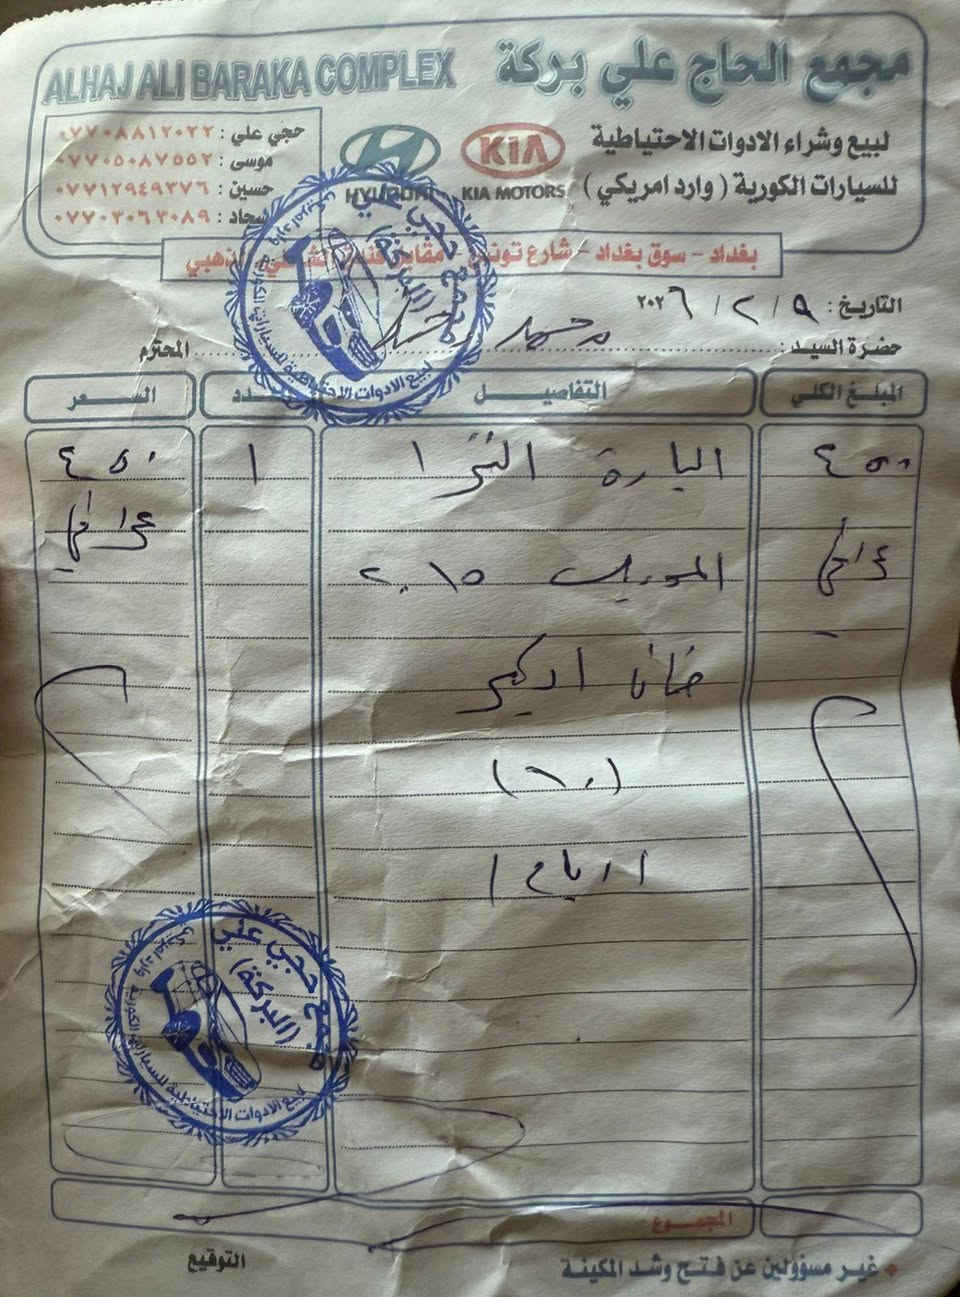 ALHAJ ALI BARAKA COMPLEX مجمع الحاج علي بركة
حجي علي : ٠٧٧٠٨٨١٢٠٢٢
موسى : ٠٧٧٠٥٠٨٧٥٥٢
حسين : ٠٧٧١٢٩٤٩٣٧٦
سجاد : ٠٧٧٠٣٠٦٣٠٨٩
HYUNDAI
KIA
KIA MOTORS
لبيع وشراء الادوات الاحتياطية
للسيارات الكورية ( وارد امريكي )
بغداد - سوق بغداد - شارع تونس - مقابل
التاريخ : ٩ / ٢ / ٢٠٢٦
حضرة السيد : محمد المحترم
مجمع حجي علي
(البركة)
لبيع الادوات الاحتياطية للسيارات الكورية وارد امريكي
المبلغ الكلي التفاصيل العدد السعر
٤٥٠ ١ ٤٥٠
عراقي عراقي
الموديل ٢٠١٥
(١٠)
مجمع حجي علي
(البركة)
لبيع الادوات الاحتياطية للسيارات الكورية وارد امريكي
المجموع
غير مسؤولين عن فتح وشد المكينة
التوقيع